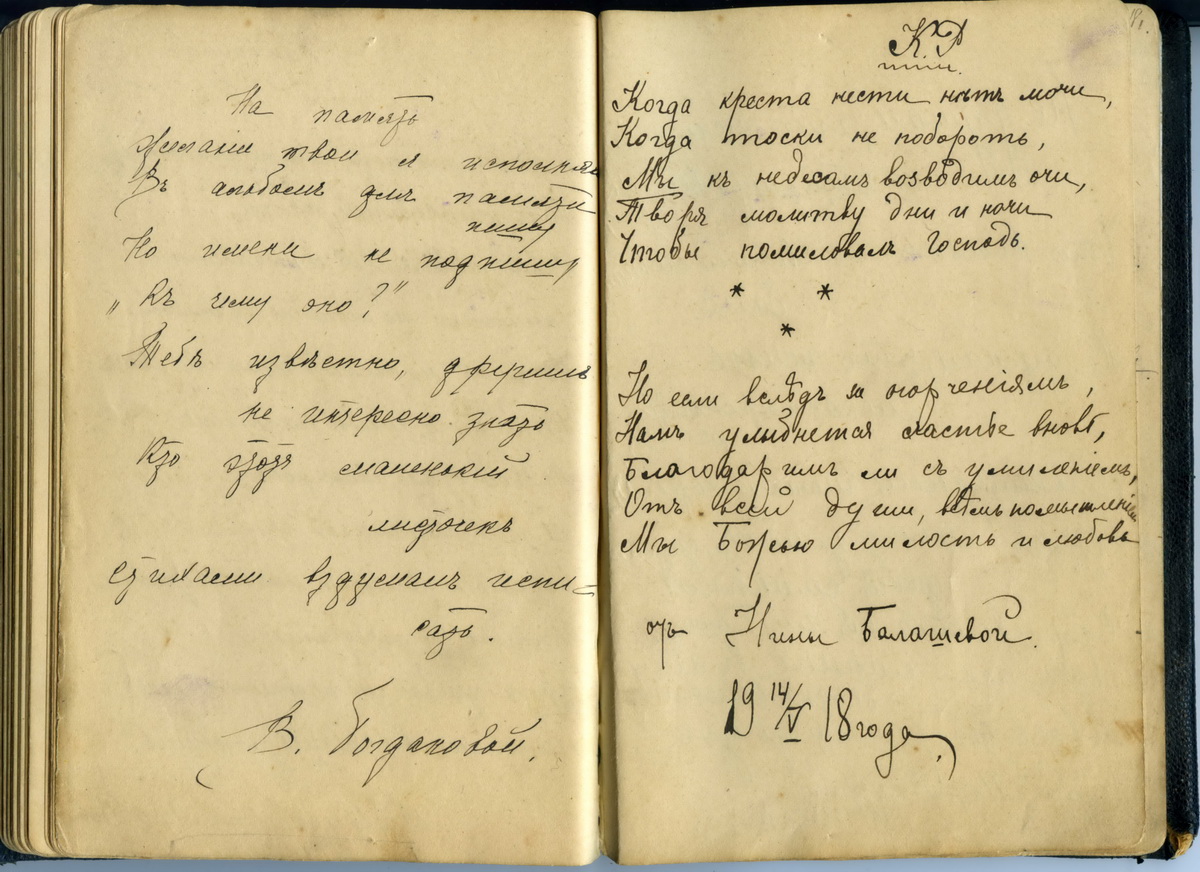 На память
Желанiе твои я исполняю
Въ альбомъ для памяти
пишу
Но имени не подпишу
„Къ чему оно?"
Тебѣ извѣстно, другимъ
не интересно знать
Кто этотъ маленькiй
листочекъ
стихами вздумалъ испи-
сать.
В. Богдановой.
К.Р.
Когда креста нести нѣтъ мочи,
Когда тоски не побороть,
Мы къ небесамъ возводимъ очи,
Творя молитву дни и ночи
Чтобы помиловалъ Господь.
* *
*
Но если вслѣдъ за огорченiямъ,
Намъ улыбнется счастье вновь,
Благодаримъ ли съ умиленiемъ,
Отъ всей души, всѣмъ помышленiемъ
Мы Божью милость и любовь
отъ Нины Балашевой.
19 14/V 18 года.